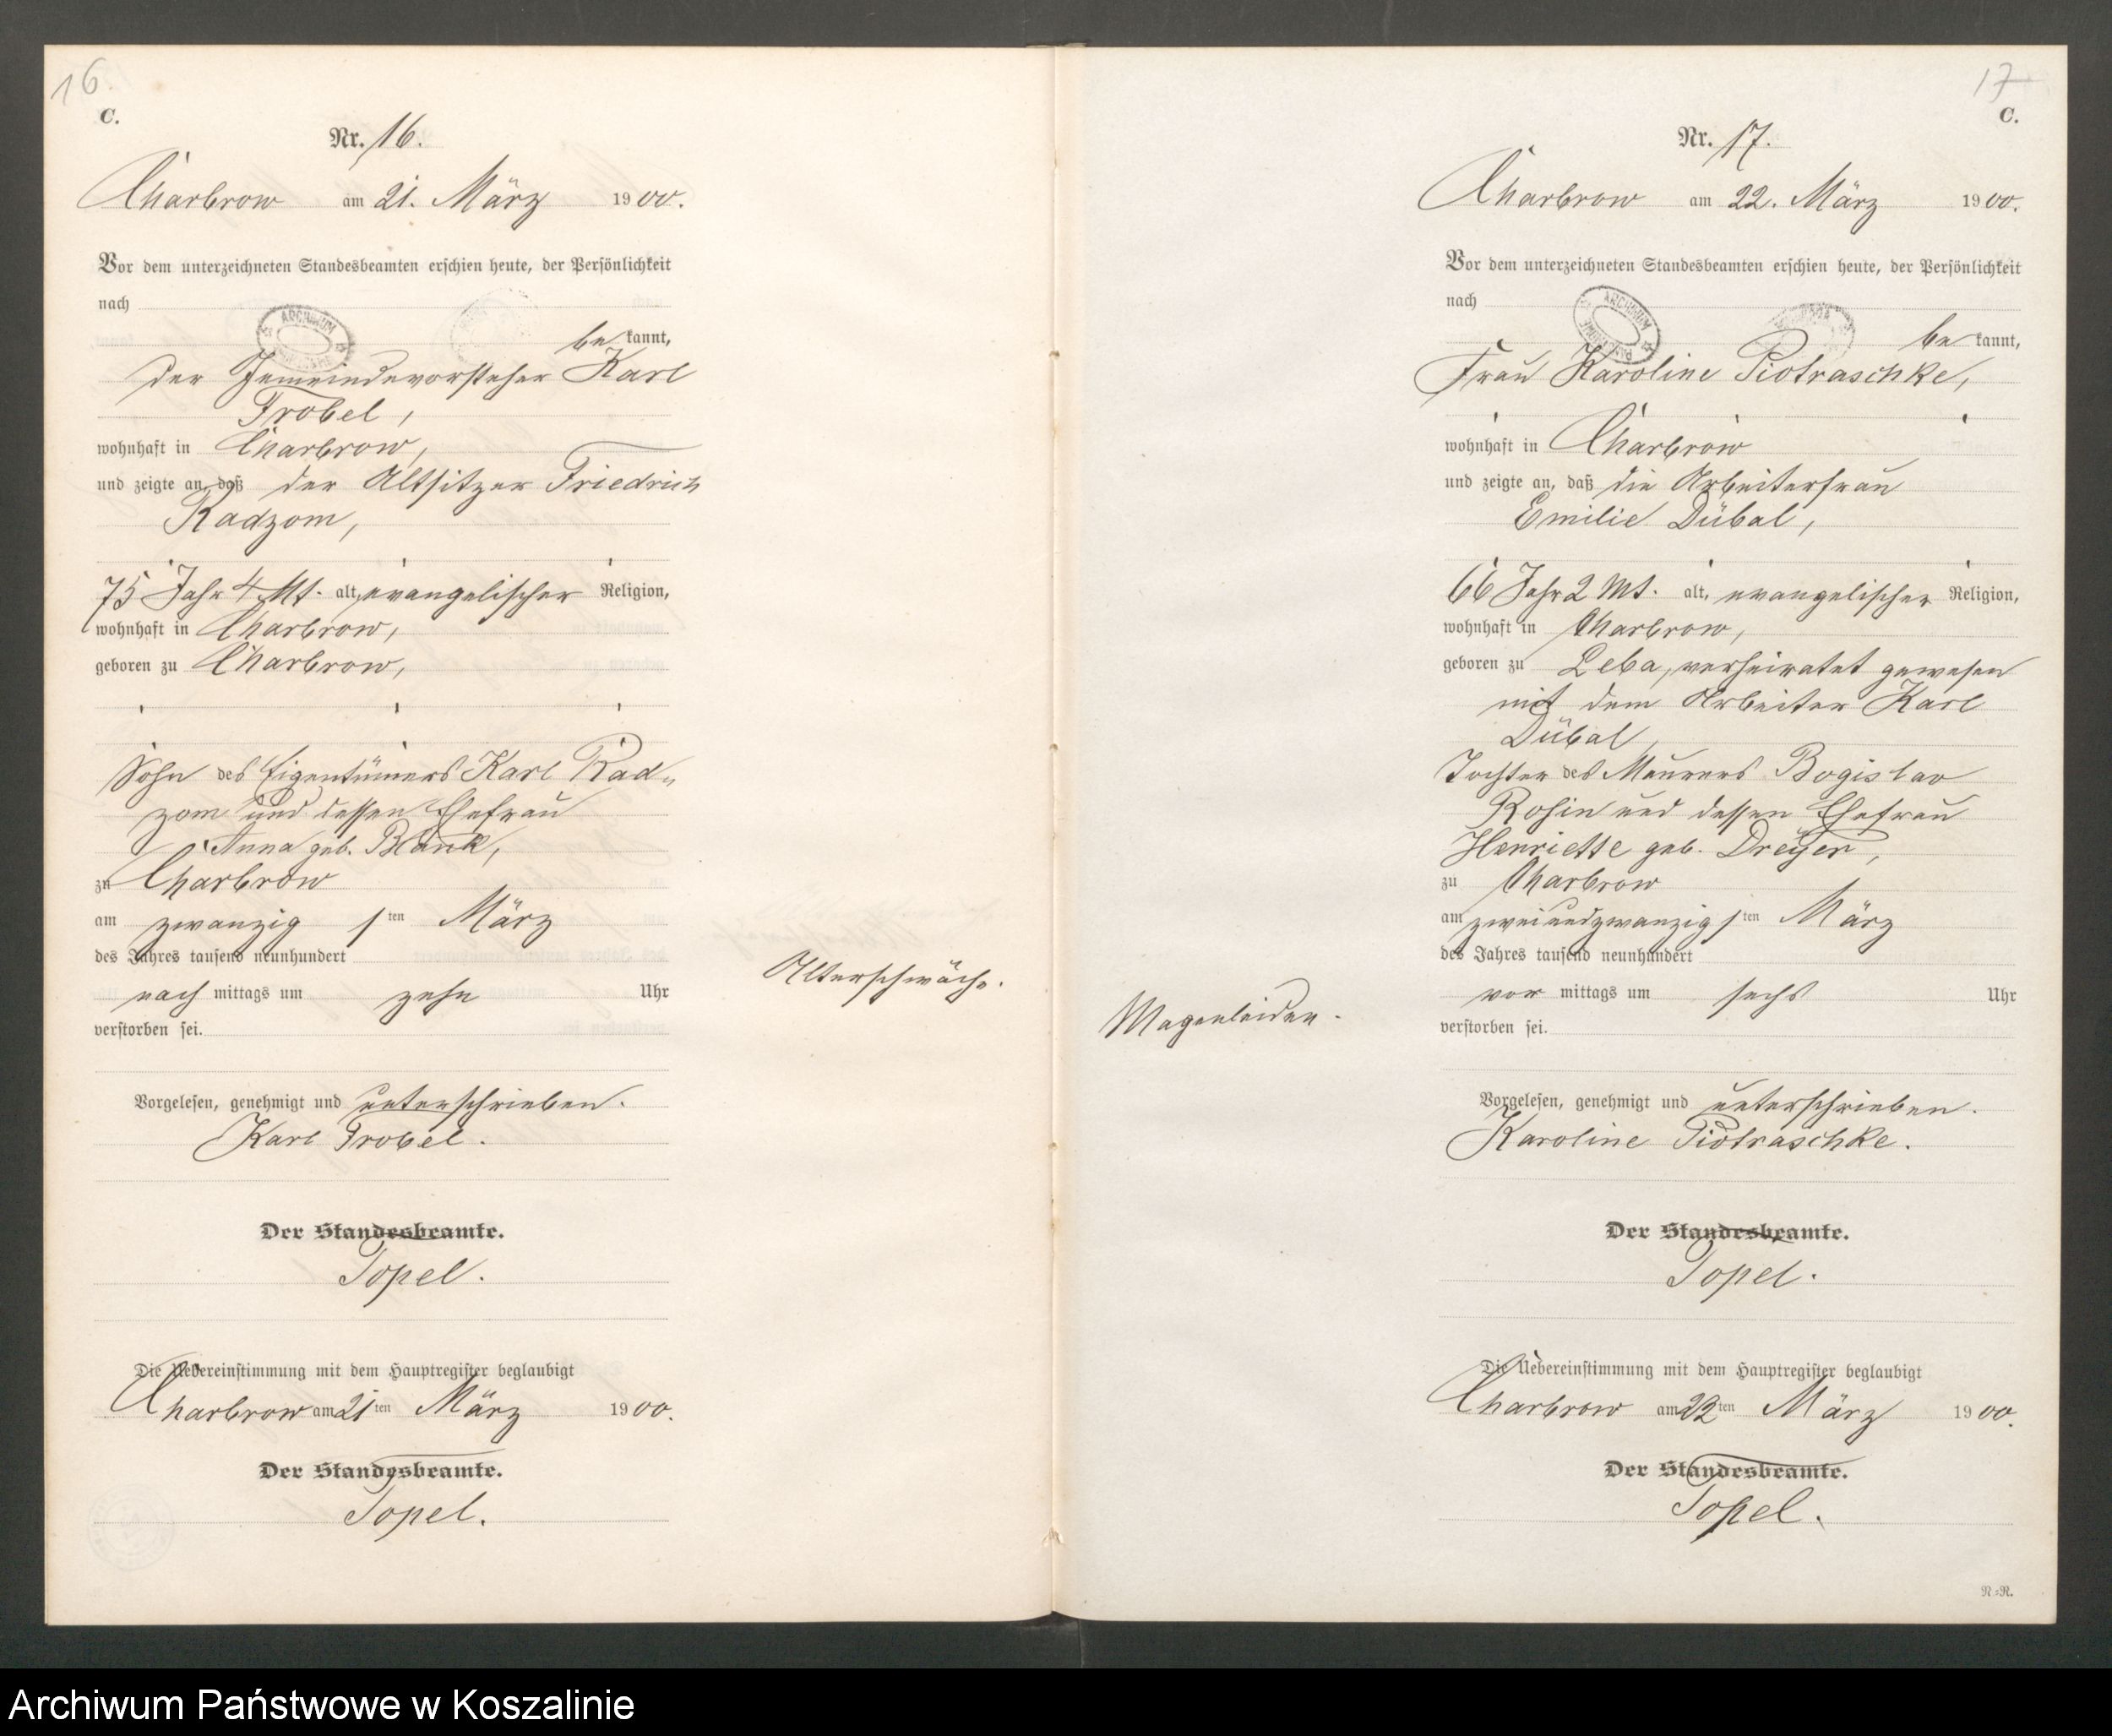 16.
C.
Nr. 16.
Charbrow am 21. März 1900.
Vor dem unterzeichneten Standesbeamten erschien heute, der Persönlichkeit
nach
bekannt,
der Gemeindevorsteher Karl
Trobel,
wohnhaft in Charbrow,
und zeigte an, daß der Altsitzer Friedrich
Radzom,
75 Jahr 4 Mt. alt, evangelischer Religion,
wohnhaft in Charbrow,
geboren zu Charbrow,
Sohn des Eigentümers Karl Rad-
zom und dessen Ehefrau
Anna geb. Blank,
zu Charbrow
am zwanzigsten März
des Jahres tausend neunhundert
nachmittags um zehn Uhr
verstorben sei.
Vorgelesen, genehmigt und unterschrieben.
Karl Trobel.
Der Standesbeamte.
Topel.
Die Uebereinstimmung mit dem Hauptregister beglaubigt
Charbrow am 21ten März 1900.
Der Standesbeamte.
Topel.
Altersschwäche.
17
C.
Nr. 17.
Charbrow am 22. März 1900.
Vor dem unterzeichneten Standesbeamten erschien heute, der Persönlichkeit
nach
ARCHIWUM
bekannt,
Frau Karoline Piotraschke,
wohnhaft in Charbrow
und zeigte an, daß die Arbeiterfrau
Emilie Dübal,
66 Jahr 2 Mt. alt, evangelischer Religion,
wohnhaft in Charbrow,
geboren zu Leba, verheiratet gewesen
mit dem Arbeiter Karl
Dübal,
Tochter des Maurers Bogislav
Rosin und dessen Ehefrau
Henriette geb. Dreyer,
zu Charbrow
am zweiundzwanzigsten März
des Jahres tausend neunhundert
vormittags um sechs Uhr
verstorben sei.
Magenleiden.
Vorgelesen, genehmigt und unterschrieben.
Karoline Piotraschke.
Der Standesbeamte.
Topel.
Die Uebereinstimmung mit dem Hauptregister beglaubigt
Charbrow am 22ten März 1900.
Der Standesbeamte.
Topel.
N=R.
Archiwum Państwowe w Koszalinie